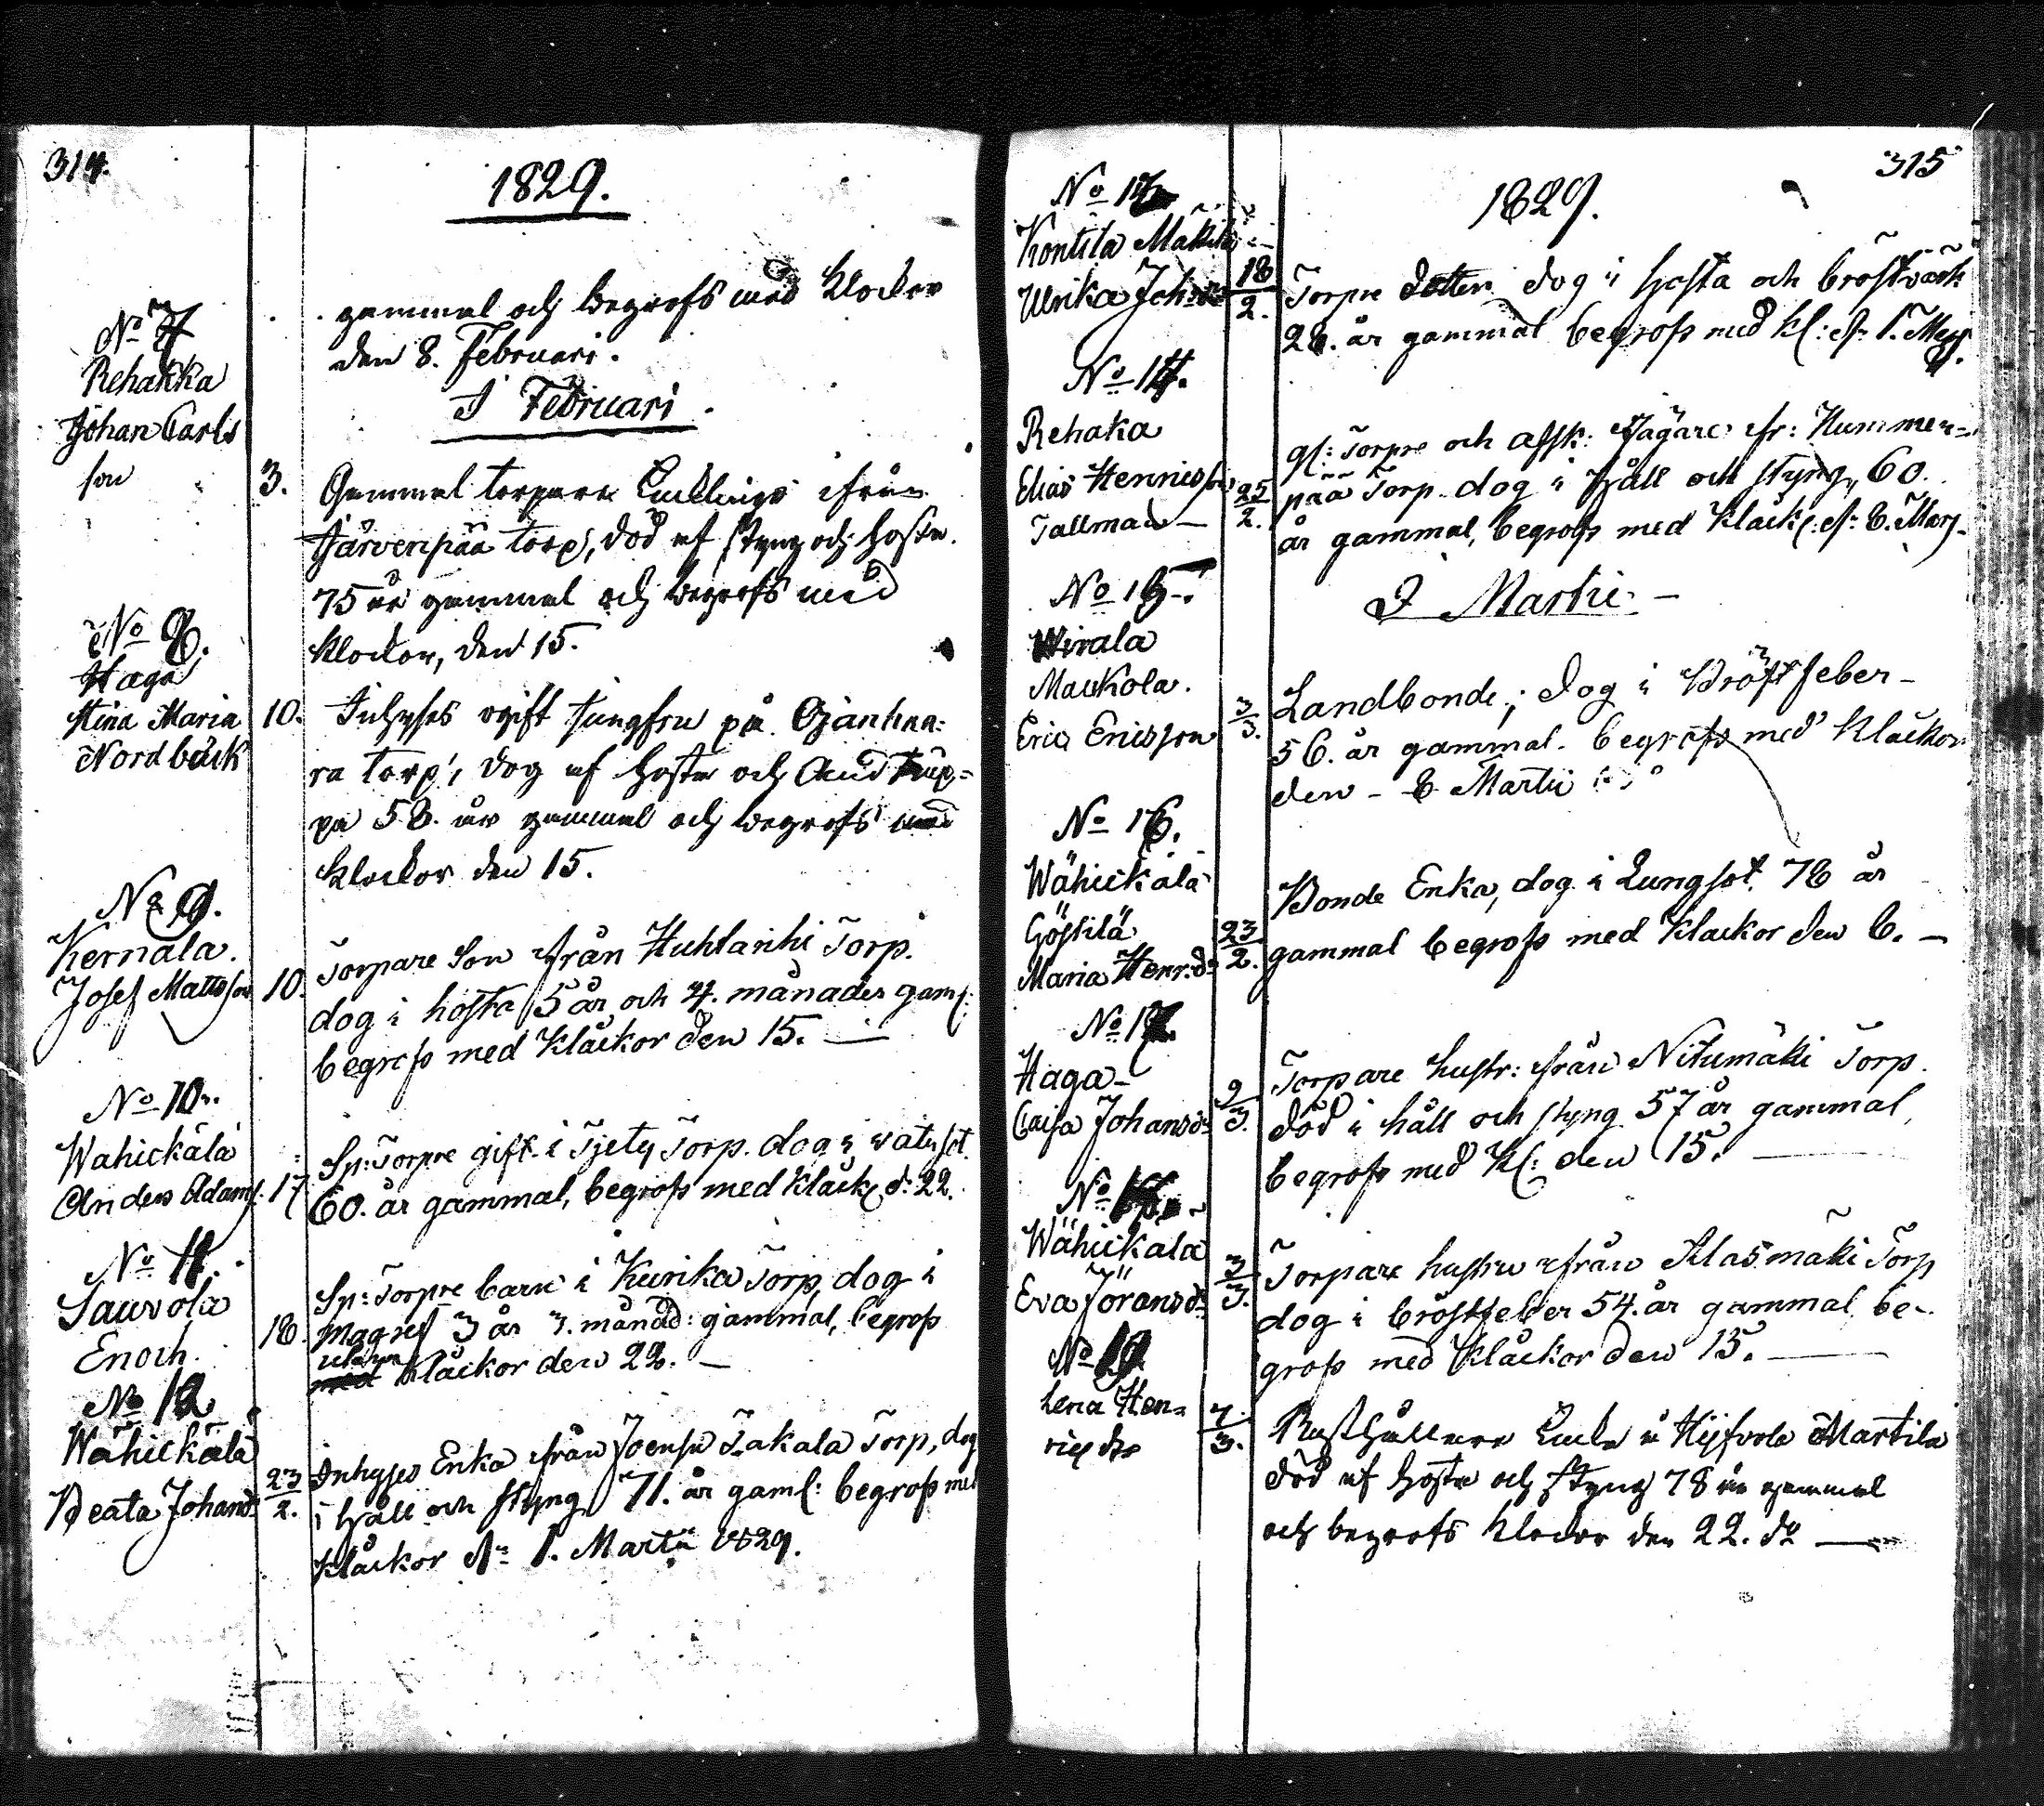 314.
1829.
gammal och begrofs med klockor
den 8. Februari.
I Februari.
No 7
Rehakka
Johan Carls
son
3.
Gammal torpare Enkling ifrån
Järvenpää torp, död af styng och hosta.
75 år gammal och begrofs med
klockor, den 15.
No 8.
Haga
Stina Maria
Nordbäck
10.
Inhyses ogift jungfru på Ojanhaa-
ra torp, dog af hosta och Andtäp-
pa 58. år gammal och begrofs med
klockor den 15.
No 9.
Kernala.
Josef Mattsson
10.
Torpare Son från Huhtarihi Torp.
dog i hosta 5 år och 4. månades gaml:
begrofs med Klåckor den 15.
No 10.
Wahickälä
Anders Adams.
17
Sp: Torpre gift i Tjety Torp. dog i watusot.
60. år gammal, begrofs med klåck. d: 22.
No 11.
Sauvola
Enoch.
18.
Sp: Torpre barn i Kurika Torp, dog i
Magref 3 år 3. månad: gammal, begrofs
utan
med Klåckor den 22.
No 12
Wähickälä
Beata Johansd:
23/2.
Inhyses Enka från Joensu Takala Torp, dog
i håll och styng 71. år gaml: begrofs med
Klåckor dn 1. Martii 1829.
315
1829.
No 13
Kontila Mäkilä
Ulrika Johsdr
18/2.
Torpre dotter dog i hosta och bröstvärk
28. år gammal begrofs med kl: dn 1. Mars.
No 14.
Rehaka
Elias Hennicsson
Tallman
25/2.
gl: Torpre och afsk: Jägare fr: Kummen-
pää Torp dog i håll och styng, 60.
år gammal, begrofs med Klåck: dn 8. Mars.
I Martii
No 15.
Wirala
Maukola.
Eric Ericsson
3/3.
Landbonde; dog i Bröstfeber
56. år gammal. begrofs med Klåckor
den 8 Martii
No 16.
Wähickälä
Göstilä
Maria Henr:dr
23/2.
Bonde Enka, dog i Lungsot. 78 år
gammal begrofs med Klåckor den 8.
No 17.
Haga
Caisa Johansdr
9/3.
Torpare hustr: från Nitumäki Torp.
död i håll och styng 57 år gammal,
begrofs med Kl: den 15.
No 18.
Wähickälä
Eva Jöransdr
3/3.
Torpare hustru från Klasmäki Torp
dog i bröstfeber 54. år gammal be-
grofs med Klåckor den 15.
No 19
Lena Hen-
ricsdr
7/3.
Rusthållare Enka å Hyfvola Martila
död af hosta och styng 78 år gammal
och begrofs klockor den 22. do